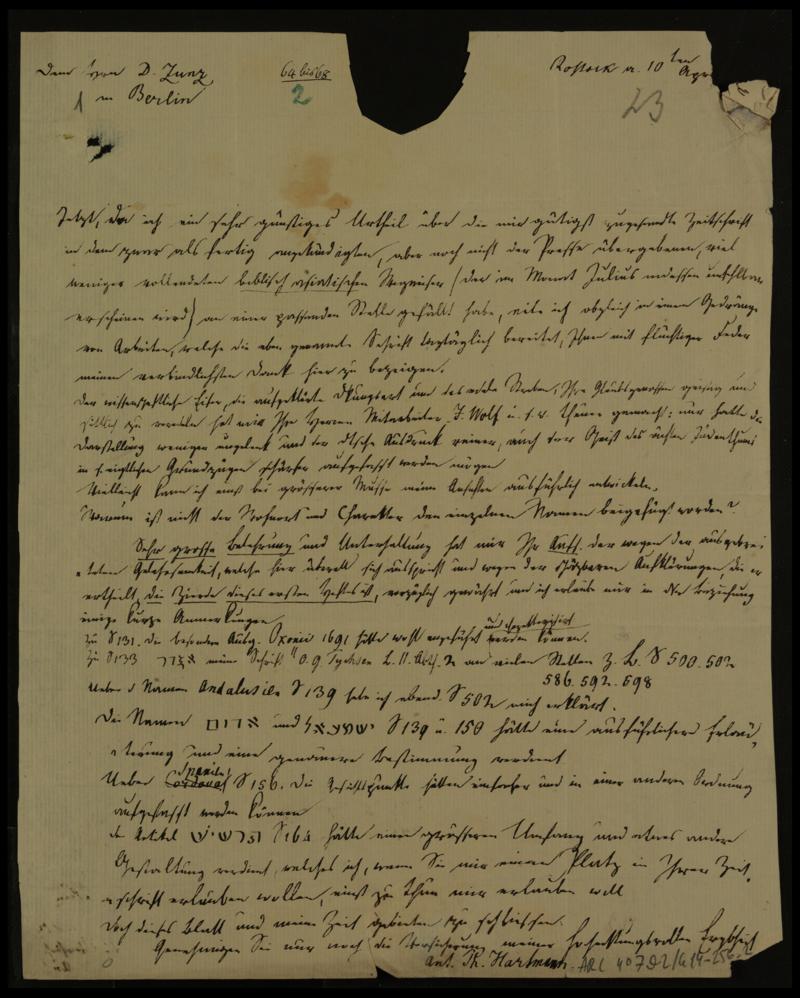 Dem Herrn D. Zunz
in Berlin
1
64 bis 68
2
Rostock d. 10ten Apr
23
Jetzt, da ich ein sehr günstiges Urtheil über die mir gütigst zugesandte Zeitschrift
in dem zwar als fertig angekündigten, aber noch nicht der Presse übergebenen, viel
weniger vollendeten biblisch asiatischen Wegweiser (der im Monat Julius indessen unfehlbar
erscheinen wird) an einer passenden Stelle gefällt habe, eile ich obgleich in einem Gedränge
von Arbeiten, welche die eben genannte Schrift tagtäglich bereitet, Ihnen mit flüchtiger Feder
meinen verbindlichsten Dank hier zu bezeigen.
Der wissenschaftliche Eifer, die aufgeklärte Denkungsart und das edele Streben, Ihre Glaubensgenossen geistig und
sittlich zu veredeln hat mir Ihre Herren Mitarbeiter, J. Wolf u. s. w. theuer gemacht: nur hätte die
Darstellung weniger ungelenk und der dtsche Ausdruck reiner, auch der Geist des ächten Judenthums
in s. eigtlichen Grundzügen schärfer aufgefasst werden mögen
Vielleicht kann ich einst bei grösserer Musse meine Ansichten ausführlich entwickeln.
Warum ist nicht der Wohnort und Charakter den einzelnen Namen beigefügt worden?
Sehr grosse Belehrung und Unterhaltung hat mir Ihr Aufs. der wegen der ausgebrei
teten Gelehrsamkeit, welche hier überall sich ausspricht und wegen der schätzbaren Aufklärungen, die er
ertheilt, die Zierde dieses ersten Heftes ist, vorzüglich gewährt und ich erlaube mir in dsr Beziehung
einige kurze Anmerkungen
Zu S 131. Die besondere Ausg. Oxonii 1691 hätte wohl angeführt und charakterisirt werden können.
Zu S 133 אגדר meine Schrift O. G. Tychsen B. II. Abth. 2 an vielen Stellen z. B. S 500. 502
586. 592. 698
Ueber d Namen Andalusien S 139 habe ich ebend. S 502 mich erklärt.
Die Namen אדום und ישמעאל S 139 u. 150 hätte eine ausführlichere Erläu
terung und eine genauere Bestimmung verdient
Ueber Spanien S 156. Die Gesichtspunkte hätten einfacher und in einer anderen Ordnung
aufgefasst werden können
de Artikel תרשיש S 162 hätte einen grösseren Umfang und etwas andere
Gestaltung verdient, welches ich, wenn Sie mir einen Platz in Ihrer Zeit
schrift erlauben wollen, einst zu thun mir erlauben will
Doch dieses Blatt und meine Zeit gebieten zu schliessen.
Genehmigen Sie nur noch die Versicherung meiner hochachtungsvollen Ergebenheit
Ant. Th. Hartmann
ARC 40792/G14-256